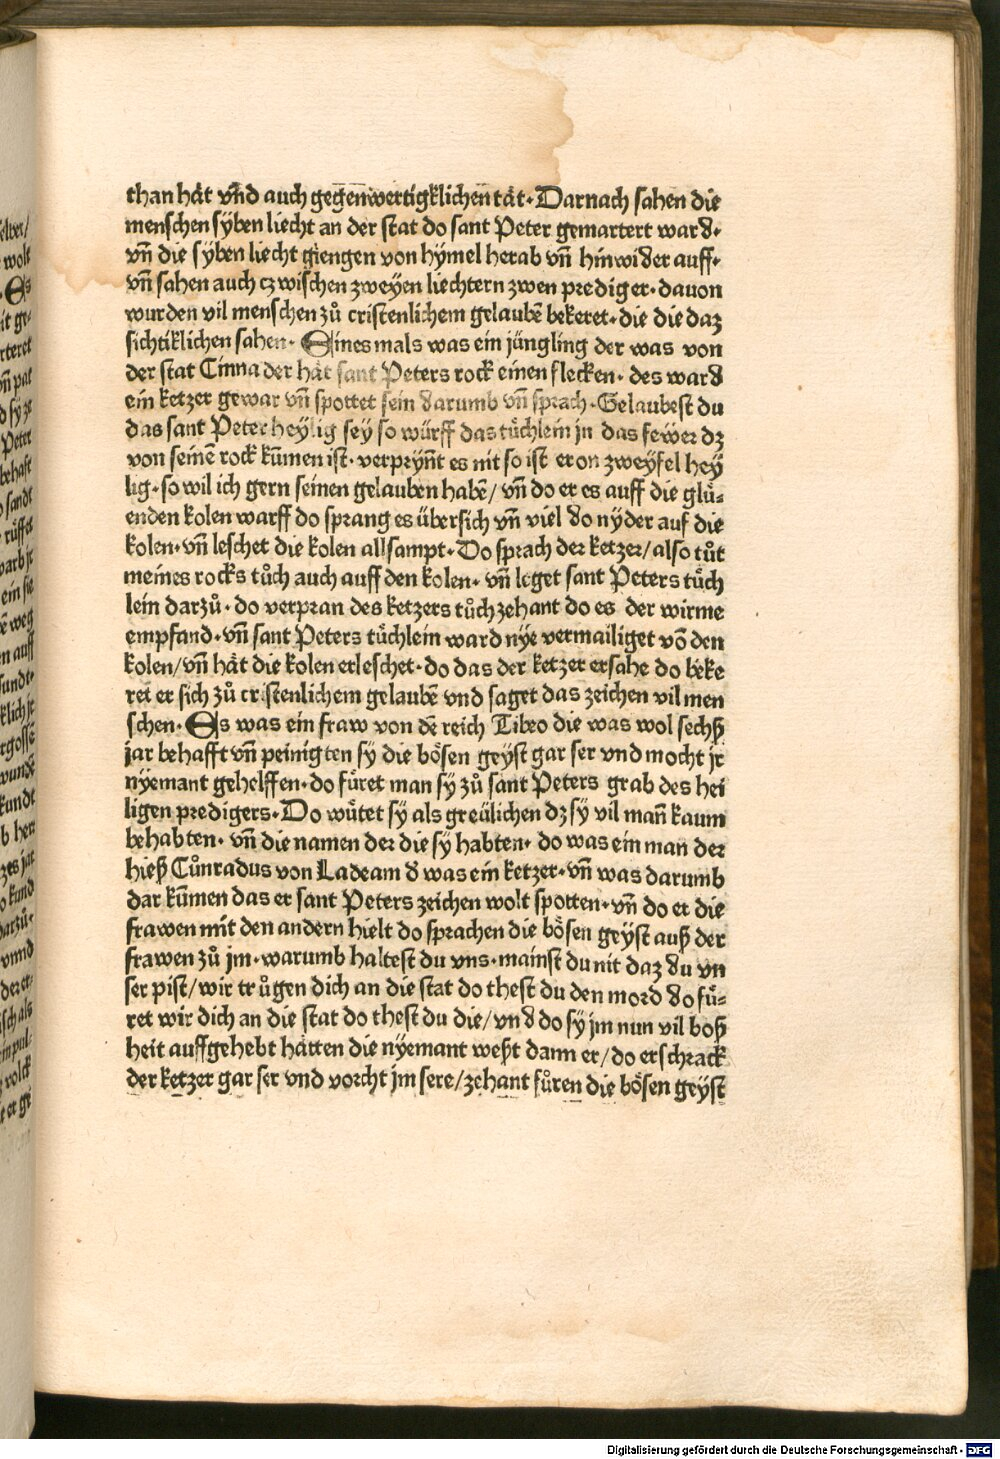 than hät vnd auch gegenwertigklichen tät · Darnach sahen die
menschen syben liecht an der stat do sant Peter gemartert ward ·
vñ die syben liecht giengen von hymel herab vñ hinwider auff ·
vñ sahen auch czwischen zweyen liechtern zwen prediger · dauon
wurden vil menschen zů cristenlichem gelaubē bekeret · die die daz
sichtiklichen sahen · Eines mals was ein jüngling der was von
der stat Cinna der hät sant Peters rock einen flecken · des ward
ein ketzer gewar vñ spottet sein darumb vñ sprach · Gelaubest du
das sant Peter heylig sey so würff das tüchlein jn das fewer dz
von seinē rock kūmen ist · verprynt es nit so ist er on zweyfel hey
lig · so wil ich gern seinen gelauben habē / vñ do er es auff die glü⸗
enden kolen warff do sprang es übersich vñ viel do nyder auf die
kolen · vñ leschet die kolen allsampt · Do sprach der ketzer / also tůt
meines rocks tůch auch auff den kolen · vñ leget sant Peters tüch
lein darzů · do verpran des ketzers tůch zehant do es der wirme
empfand · vñ sant Peters tüchlein ward nye vermailiget vō den
kolen / vñ hät die kolen erleschet · do das der ketzer ersahe do beke
ret er sich zů cristenlichem gelaubē vnd saget das zeichen vil men
schen · Es was ein fraw von dē reich Tibeo die was wol sechß
jar behafft vñ peinigten sy die bösen geyst gar ser vnd mocht jr
nyemant gehelffen · do füret man sy zů sant Peters grab des hei
ligen predigers · Do wütet sy als greülichen dz sy vil mañ kaum
behabten · vñ die namen der die sy habten · do was ein man der
hieß Cůnradus von Ladeam d was ein ketzer · vñ was darumb
dar kūmen das er sant Peters zeichen wolt spotten · vñ do er die
frawen mit den andern hielt do sprachen die bösen geyst auß der
frawen zů jm · warumb haltest du vns · mainst du nit daz du vn
ser pist / wir trůgen dich an die stat do thest du den mord do fü⸗
ret wir dich an die stat do thest du die / vnd do sy jm nun vil boß
heit auffgehebt hatten die nyemant weßt dann er / do erschrack
der ketzer gar ser vnd vorcht jm sere / zehant fůren die bösen geyst
Digitalisierung gefördert durch die Deutsche Forschungsgemeinschaft · DFG